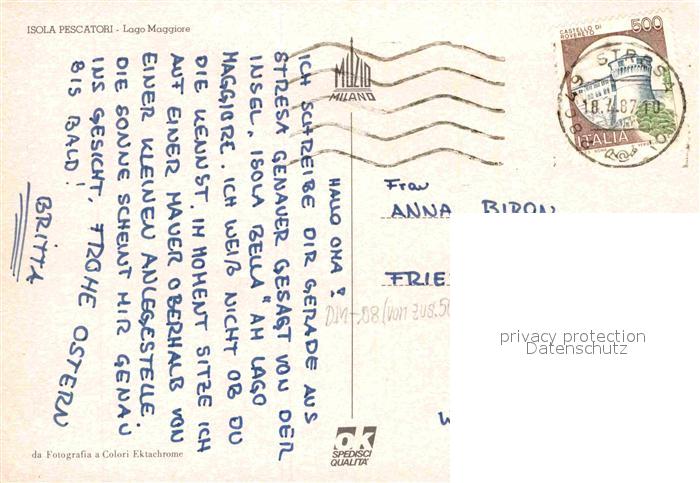 ISOLA PESCATORI - Lago Maggiore
HALLO OMA!
ICH SCHREIBE DIR GERADE AUS
STRESA GENAUER GESAGT VON DER
INSEL, ISOLA BELLA" AM LAGO
MAGGIORE. ICH WEIß NICHT OB DU
DIE KENNST. IM MOMENT SITZE ICH
AUF EINER MAUER OBERHALB VON
EINER KLEINEN ANLEGESTELLE.
DIE SONNE SCHEINT MIR GENAU
INS GESICHT, FROHE OSTERN
BIS BALD!
BRITTA
da Fotografia a Colori Ektachrome
MUZIO
MILANO
ok
SPEDISCI
QUALITA'
CASTELLO DI
ROVERETO
500
ITALIA
STRESA
18.4.87.10
Frau
ANNA BIRON
FRIE
DM -,08 (von zus. 50
W
privacy protection
Datenschutz